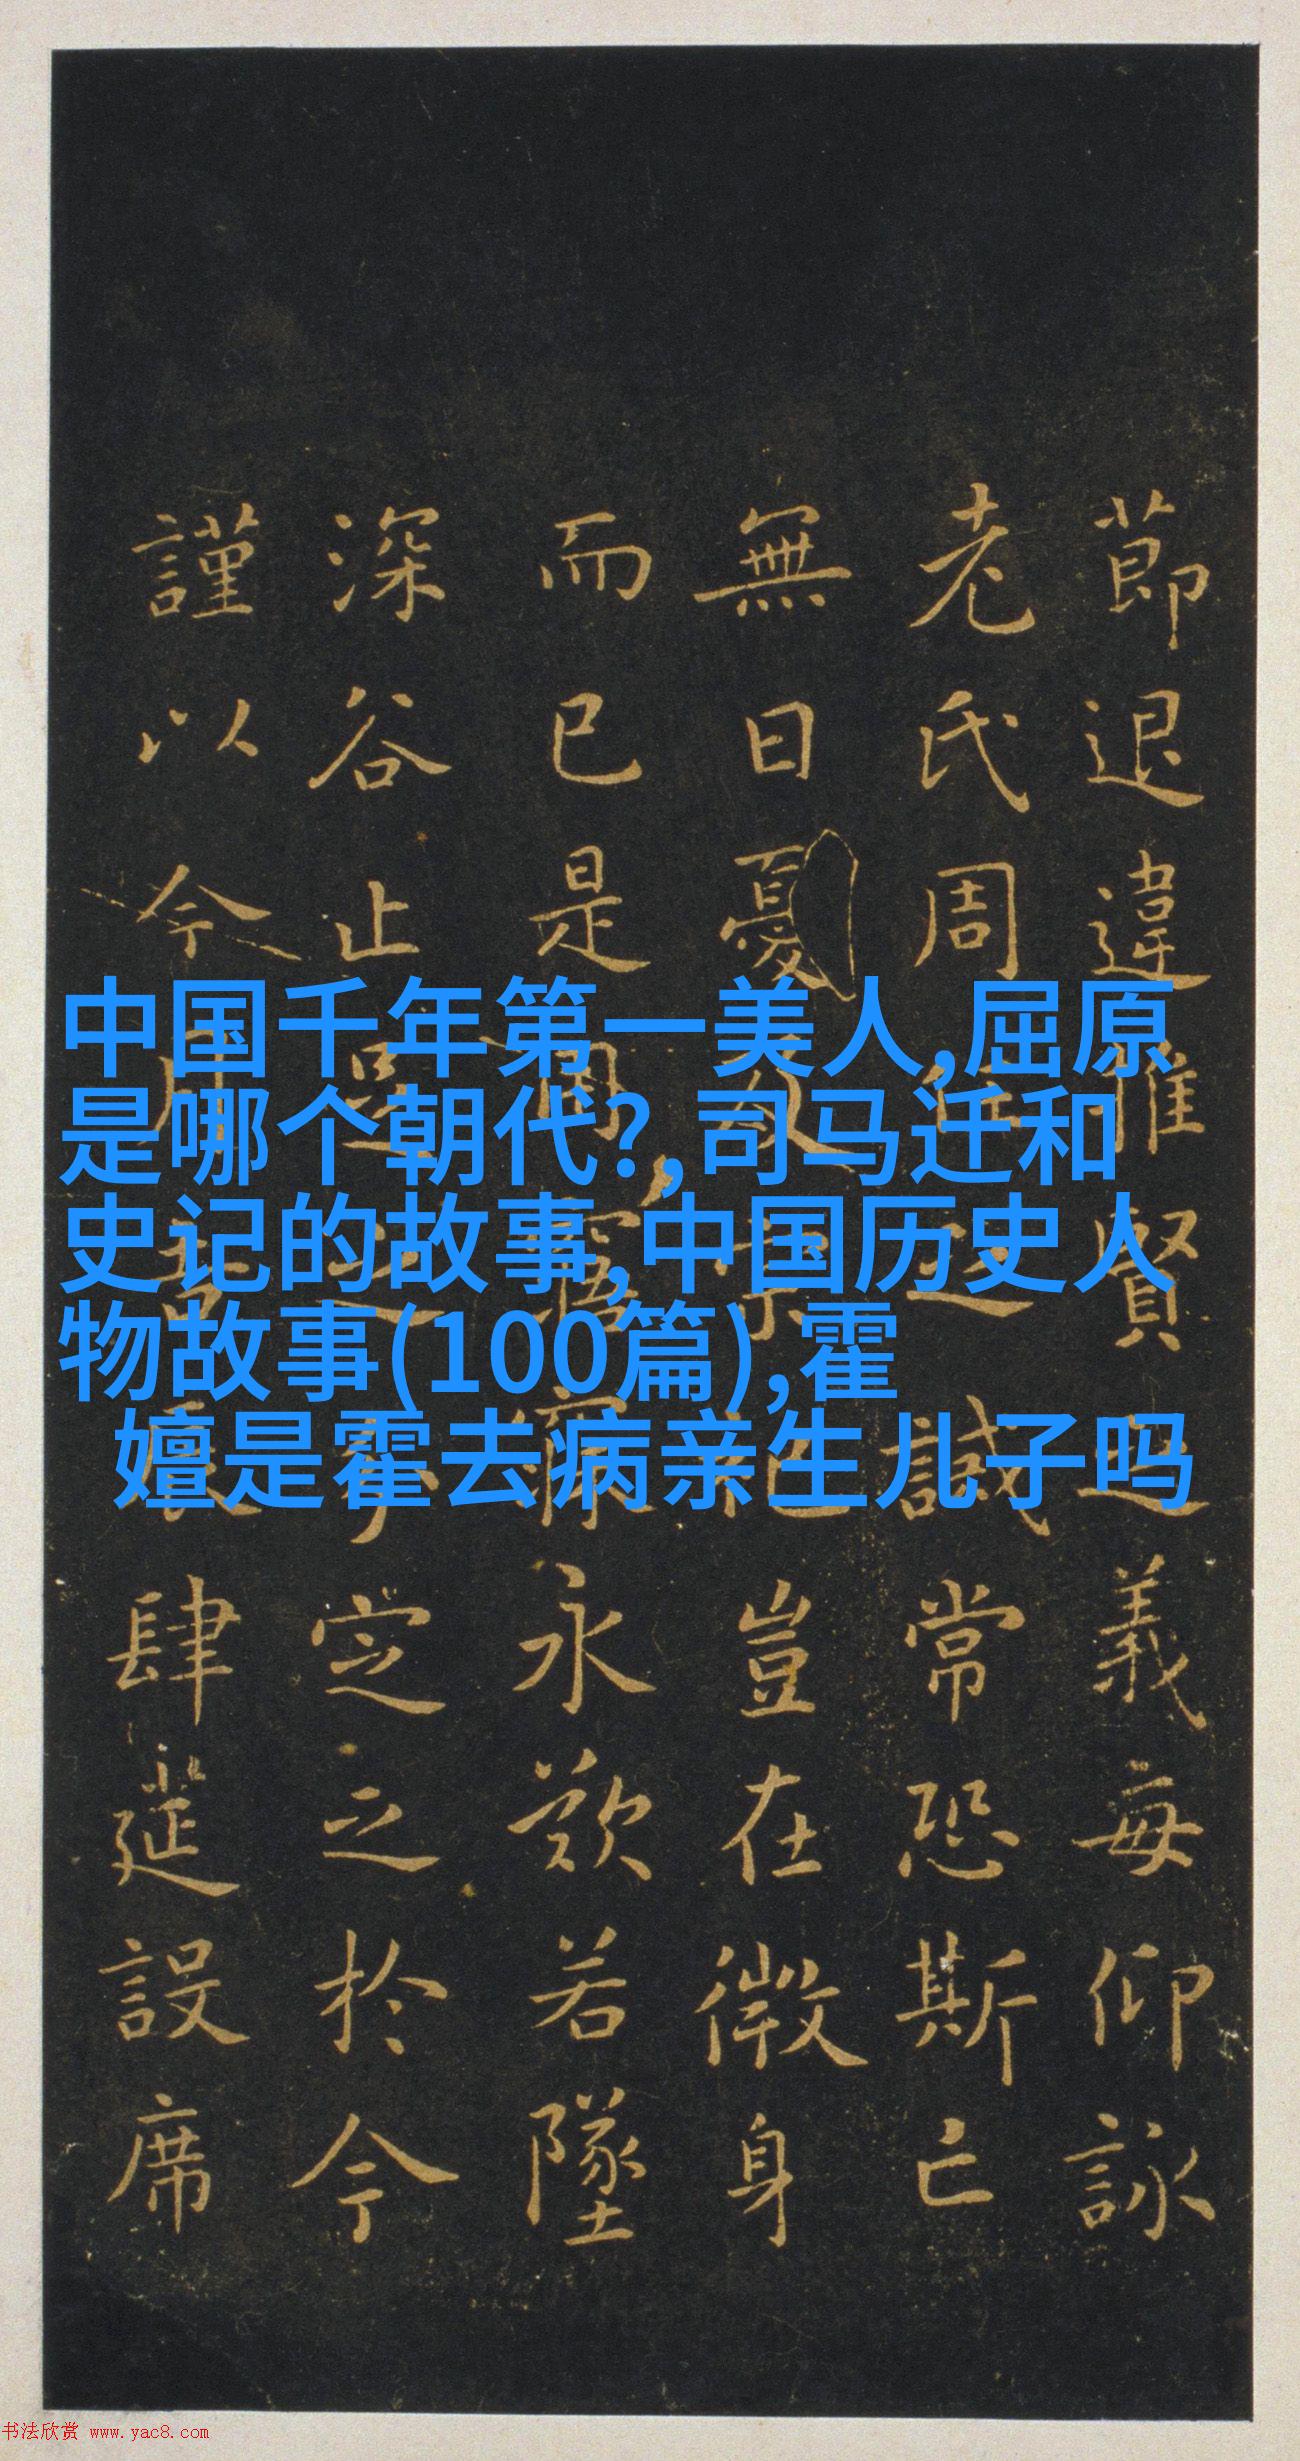 中国千年第一美人,屈原
是哪个朝代?,司马迁和
史记的故事,中国历史人
物故事(100篇),霍
嬗是霍去病亲生儿子吗
莭退違推賢之義每仰詠
老氏周任之誡常恐斯亡
無日憂及宗祀豈在微身
而已是用寤寐永歎若墜
深谷止足之分定之於今
謹以今月吉辰肆筵設席
书法欣赏 www.yac8.com